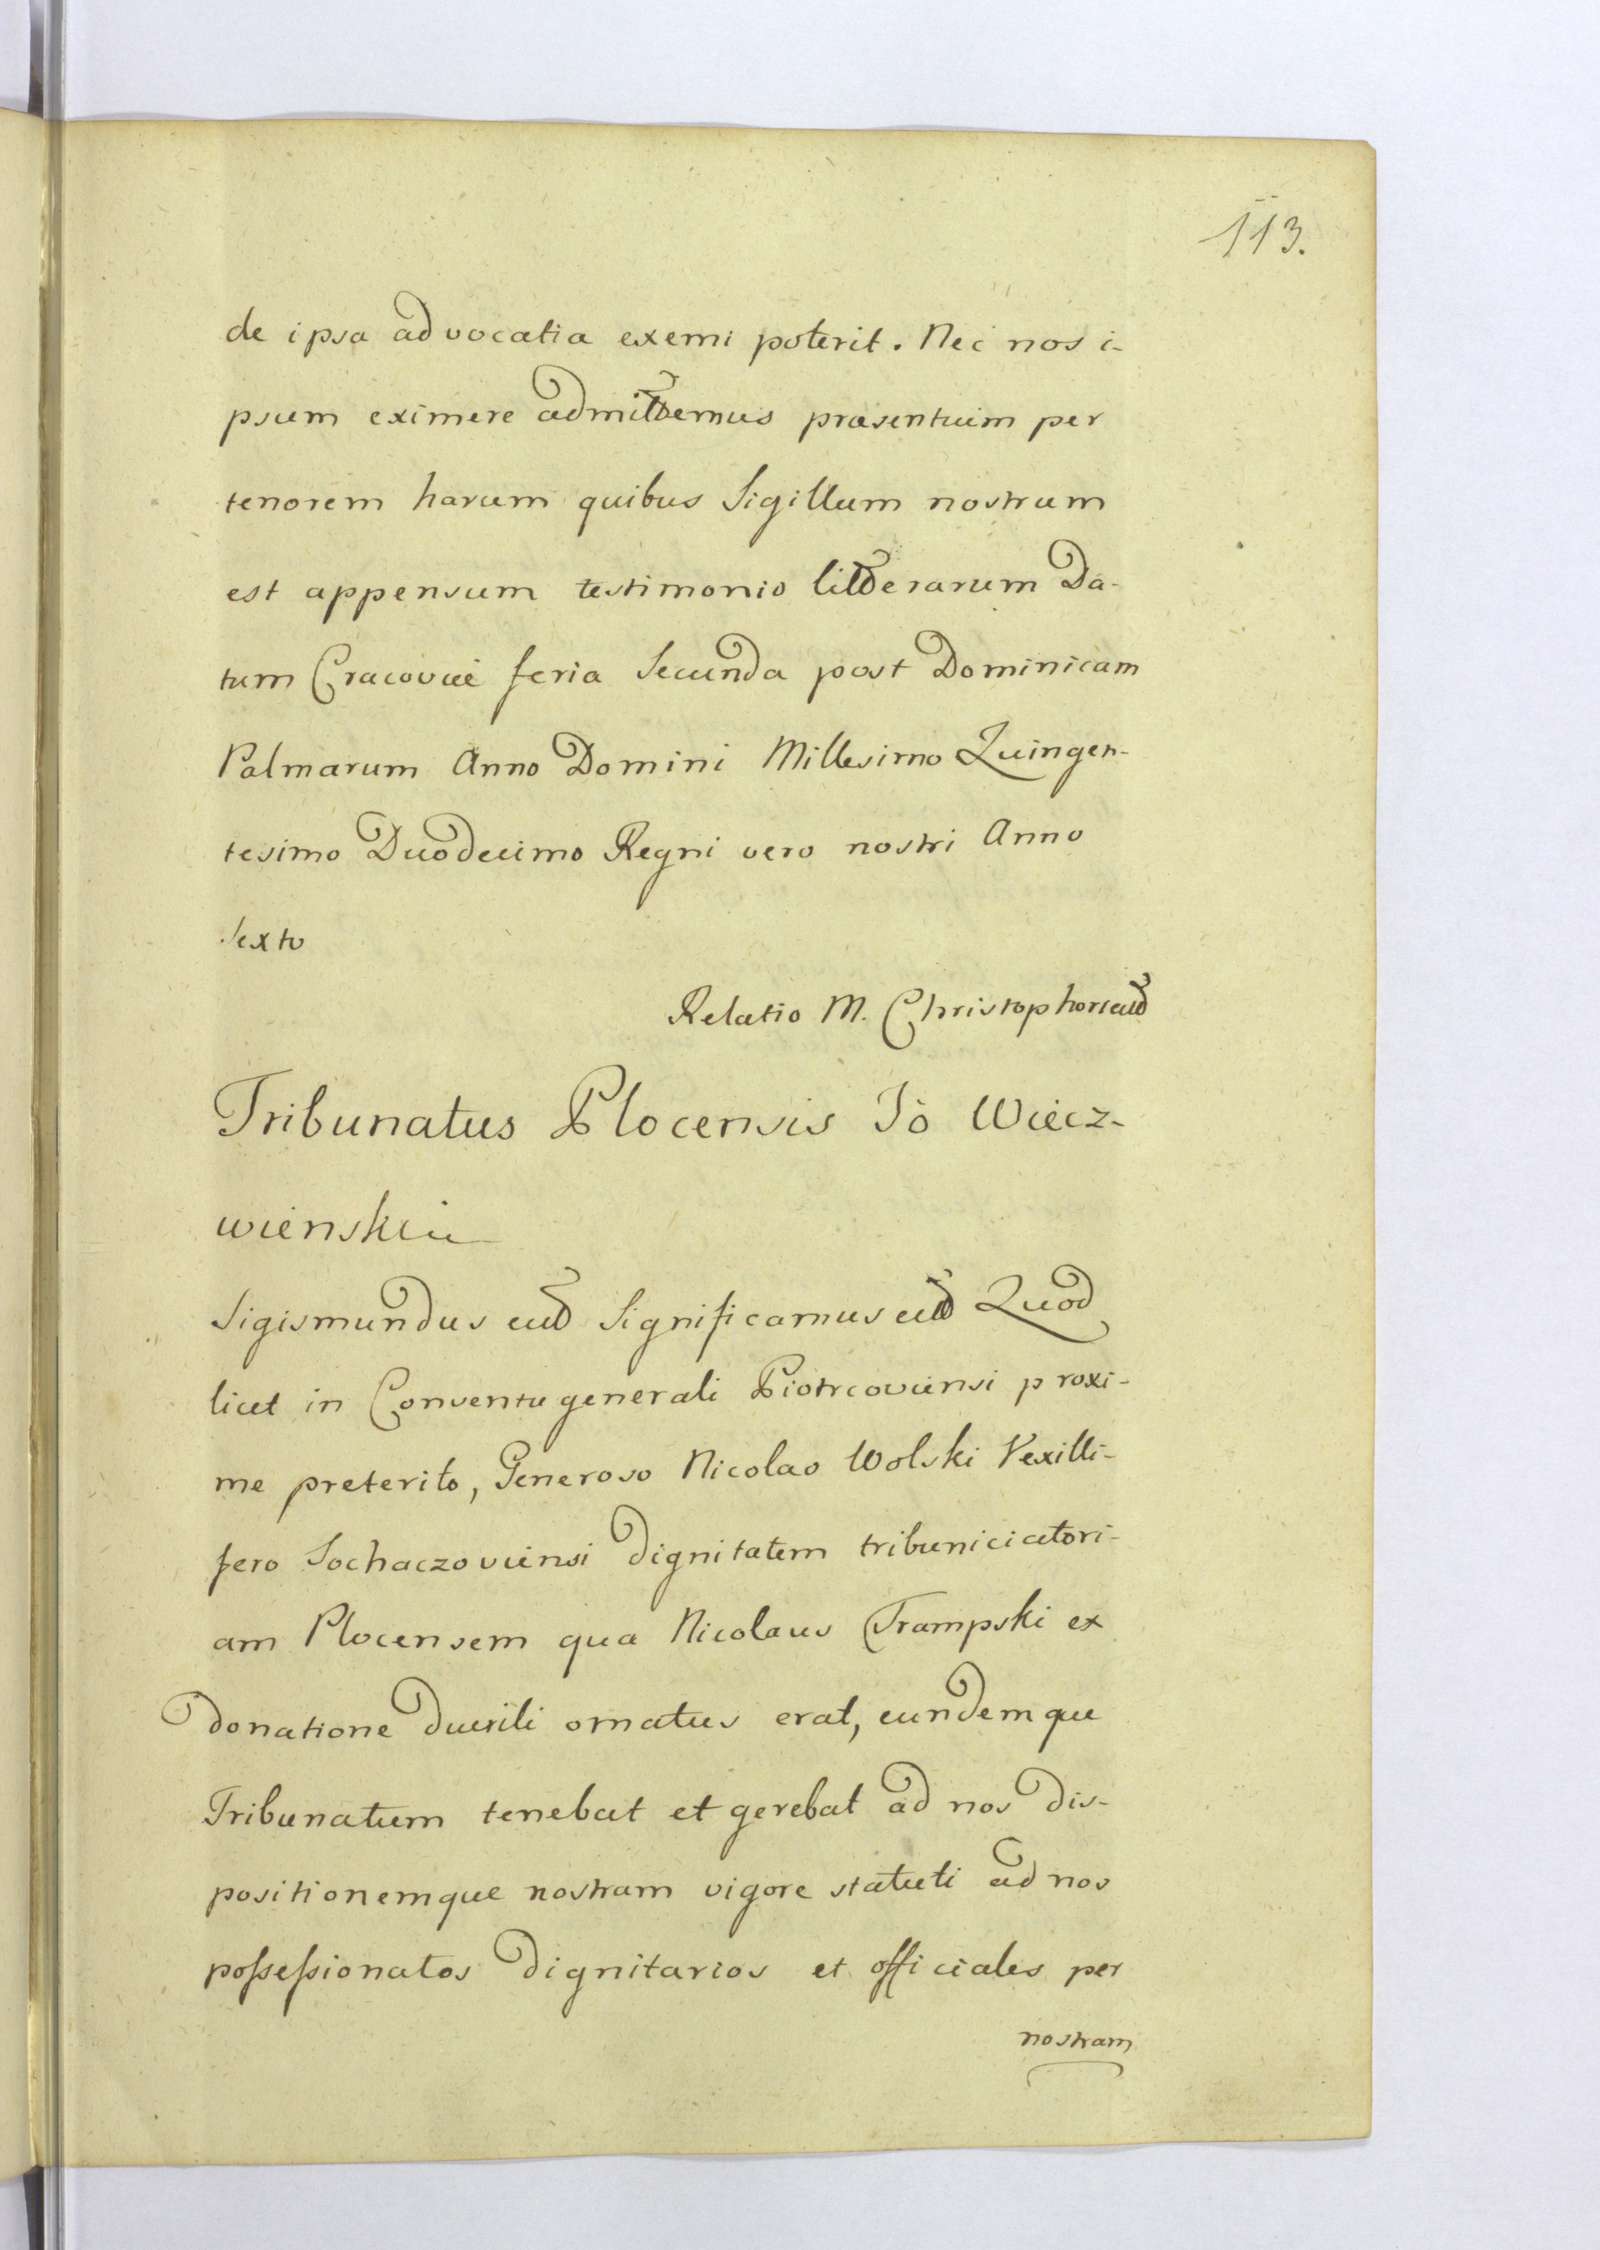 113.
de ipsa advocatia exemi poterit. Nec nos i-
psum eximere admittemus præsentuim per
tenorem harum quibus Sigillum nostrum
est appensum testimonio litterarum Da-
tum Cracoviæ feria Secunda post Dominicam
Palmarum Anno Domini Millesimo Quingen-
tesimo Duodecimo Regni vero nostri Anno
Sexto
Relatio M. Christophori
Tribunatus Plocensis Jo Wiecz-
wienskii
Sigismundus Significamus Quod
licet in Conventu generali Piotrcoviensi proxi-
me preterito, Generoso Nicolao Wolski Vexilli-
fero Sochaczoviensi dignitatem tribuniciatori-
am Plocensem qua Nicolaus Trampski ex
donatione ornatus erat, eundemque
Tribunatum tenebat et gerebat ad nos dis-
positionemque nostram vigore statuti ad nos
possessionatos dignitarios et officiales per
nostram